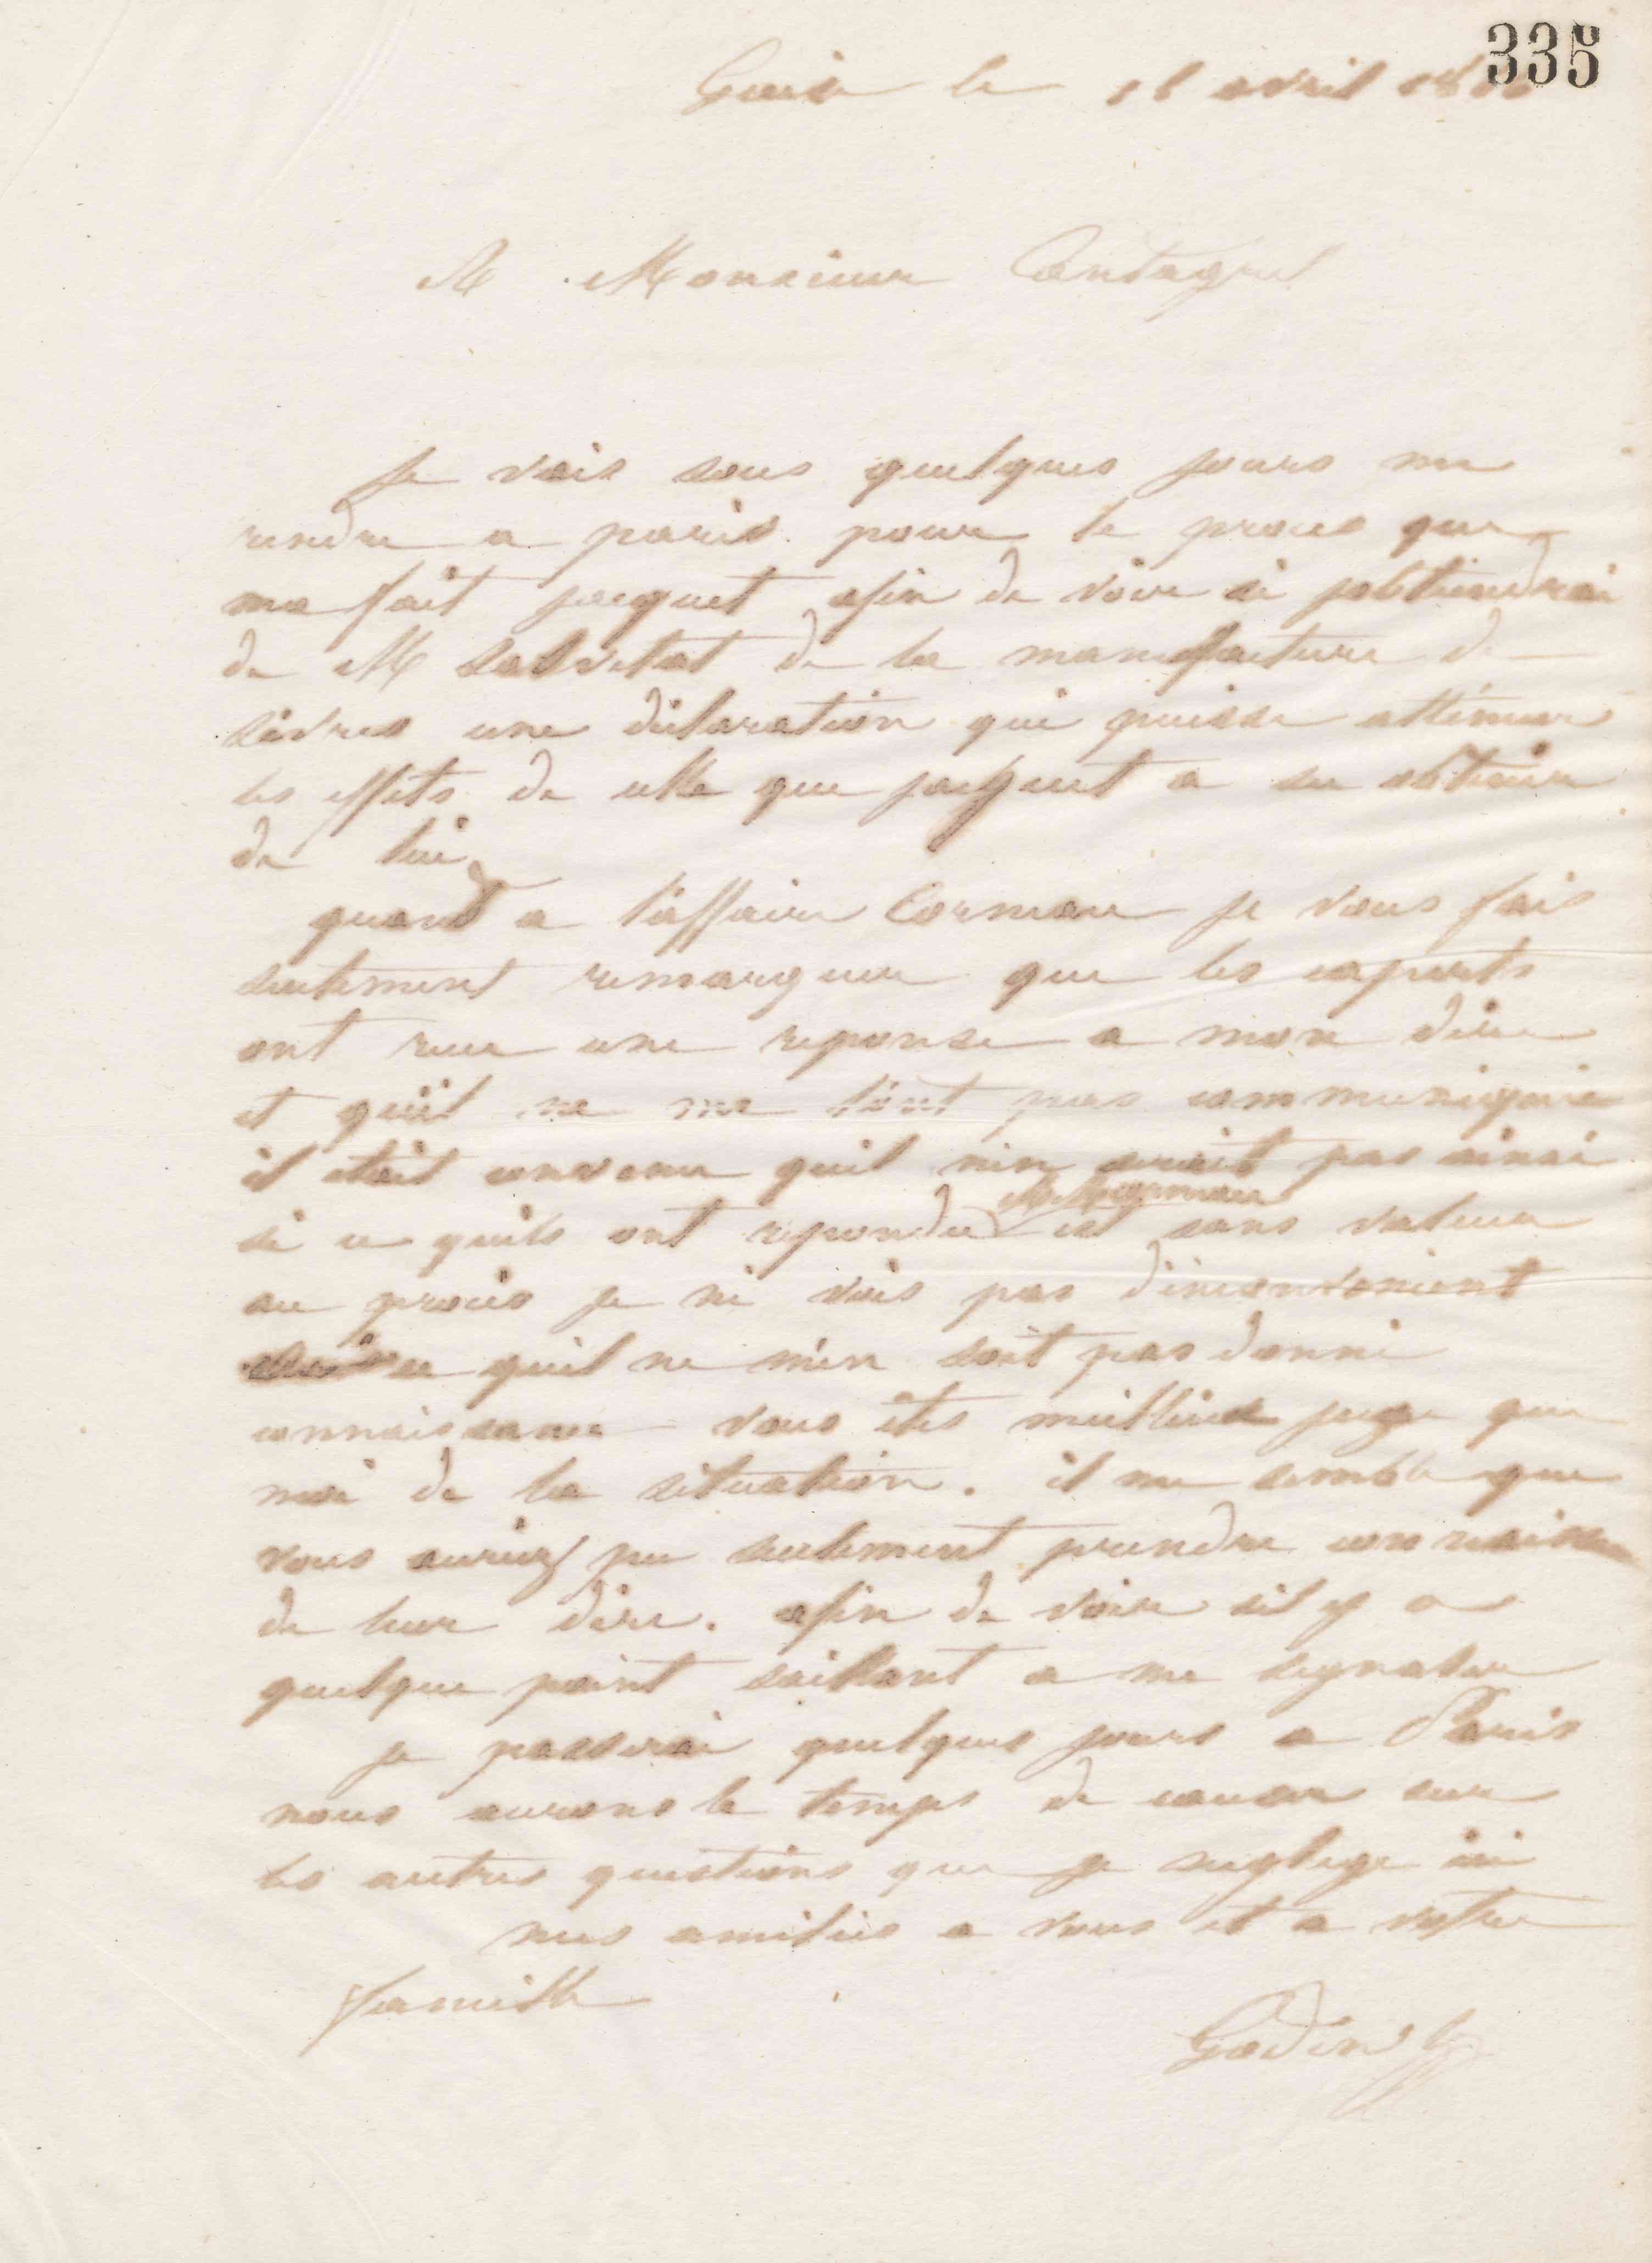 335
Guise le avril
A Monsieur Cantagrel
Je vais sous quelques jours me
rendre a paris pour le proces que
ma fait jacquet afin de voir si jobtiendrai
de M Salvetat de la manufacture de
sèvres une déclaration qui puisse atténuer
les effets de celle que jacquet a su obtenir
de lui
quand a l'affaire Corneau je vous fais
seulement remarquer que les experts
ont recu une reponse a mon dire
et quil ne me l'ont pas communiquée
il etait convenu quil nen serait pas ainsi
si ce quils ont repondu est sans valeur
au procès je ni vois pas dinconvenient
ce quil ne m'en soit pas donné
connaissance vous êtes meilleur juge que
moi de la situation. il me semble que
vous auriez pu seulement prendre
de leur dire. afin de voir sil y a
quelque point saillant a me signaler
je passerai quelques jours a Paris
nous aurons le temps de causer sur
les autres questions que je neglige ici
mes amitiés a vous et a votre
famille
Godin